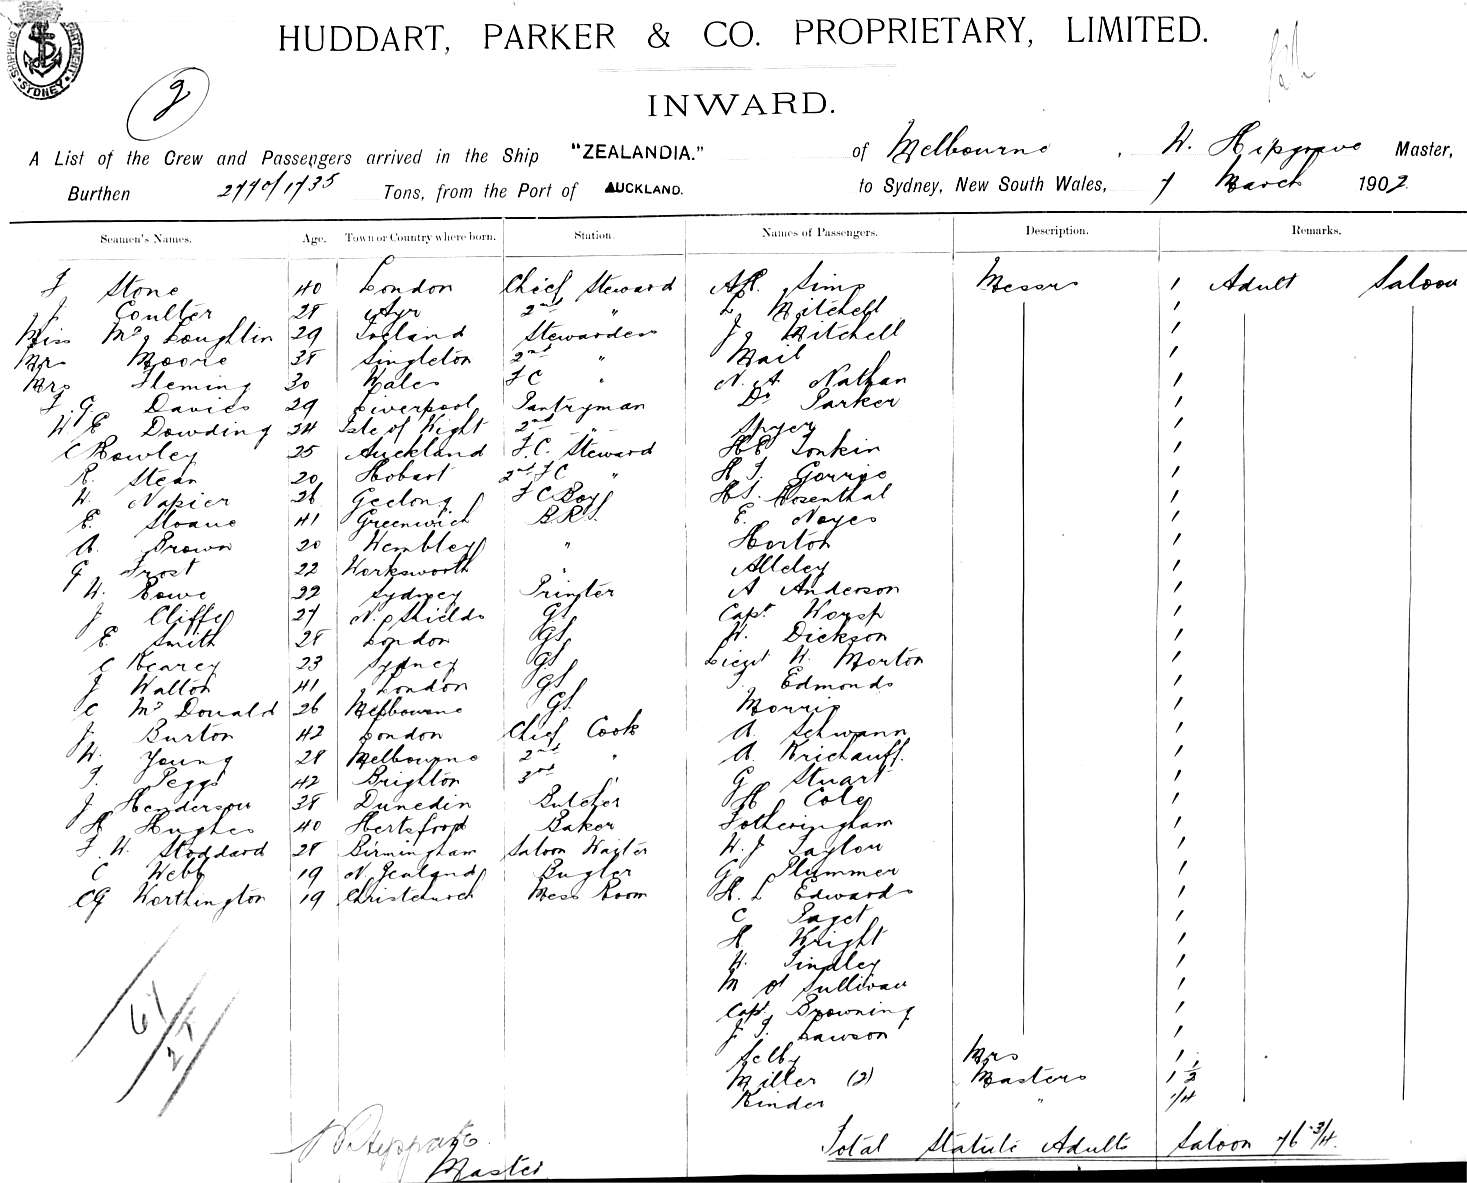 SHIPPING DEPARTMENT SYDNEY
HUDDART, PARKER & CO. PROPRIETARY, LIMITED.
2
INWARD.
A List of the Crew and Passengers arrived in the Ship "ZEALANDIA." of Melbourne, W. Hipgrave Master,
Burthen 2770/1735 Tons, from the Port of AUCKLAND. to Sydney, New South Wales, 7 March 1902
Seamen's Names. Age. Town or Country where born. Station. Names of Passengers. Description. Remarks.
F Stone 40 London Chief Steward AR. Sims Messrs 1 Adult Saloon
J. Coulter 28 Ayr 2nd " L Mitchell 1
Miss McLoughlin 29 Ireland Stewardess J Mitchell 1
Mrs Moore 38 Singleton 2nd " Mail 1
Mrs Fleming 30 Wales FC " N. A Nathan 1
F. G. Davies 29 Liverpool Pantryman Dr Parker 1
W E Dowding 24 Isle of Wight 2nd " 1
C Rowley 25 Auckland F.C. Steward HE Tonkin 1
R. Stean 20 Hobart 2nd FC " H T. Gorrie 1
W. Napier 26 Geelong FC Boy HS. Rosenthal 1
E. Sloane 41 Greenwich B.R.S. E. Noyes 1
A. Brown 20 Wembley " Horton 1
G Frost 22 Worksworth " Alleley 1
W. Rowe 22 Sydney Printer A Anderson 1
J Cliffe 27 N. Shields GS Capt Worsp 1
E. Smith 28 London GS W. Dickson 1
C Kearey 23 Sydney GS Lieut W. Morton 1
J Walton 41 London GS Edmonds 1
C McDonald 26 Melbourne GS. Morris 1
J. Burton 42 London Chief Cook A. Schwann 1
W. Young 28 Melbourne 2nd " A. Krichauff. 1
T. Peggs 42 Brighton 3rd " G Stuart 1
J Henderson 38 Dunedin Butcher H Cole 1
H Hughes 40 Hertsford Baker Fotheringham 1
F. W. Stoddard 28 Birmingham Saloon Waiter W. J Taylor 1
C Webb 19 N. Zealand Bugler G Plummer 1
CG Worthington 19 Christchurch Mess Room H. L Edwards 1
C Paget 1
H Wright 1
W. Tindley 1
M O Sullivan 1
Capt. Browning 1
J T. Lawson 1
Selby Mrs 1
Miller (2) Masters 1 1/2
Kinder " " 1/4
61/27
Total Statute Adults Saloon 76 3/4.
W. Hipgrave
Master